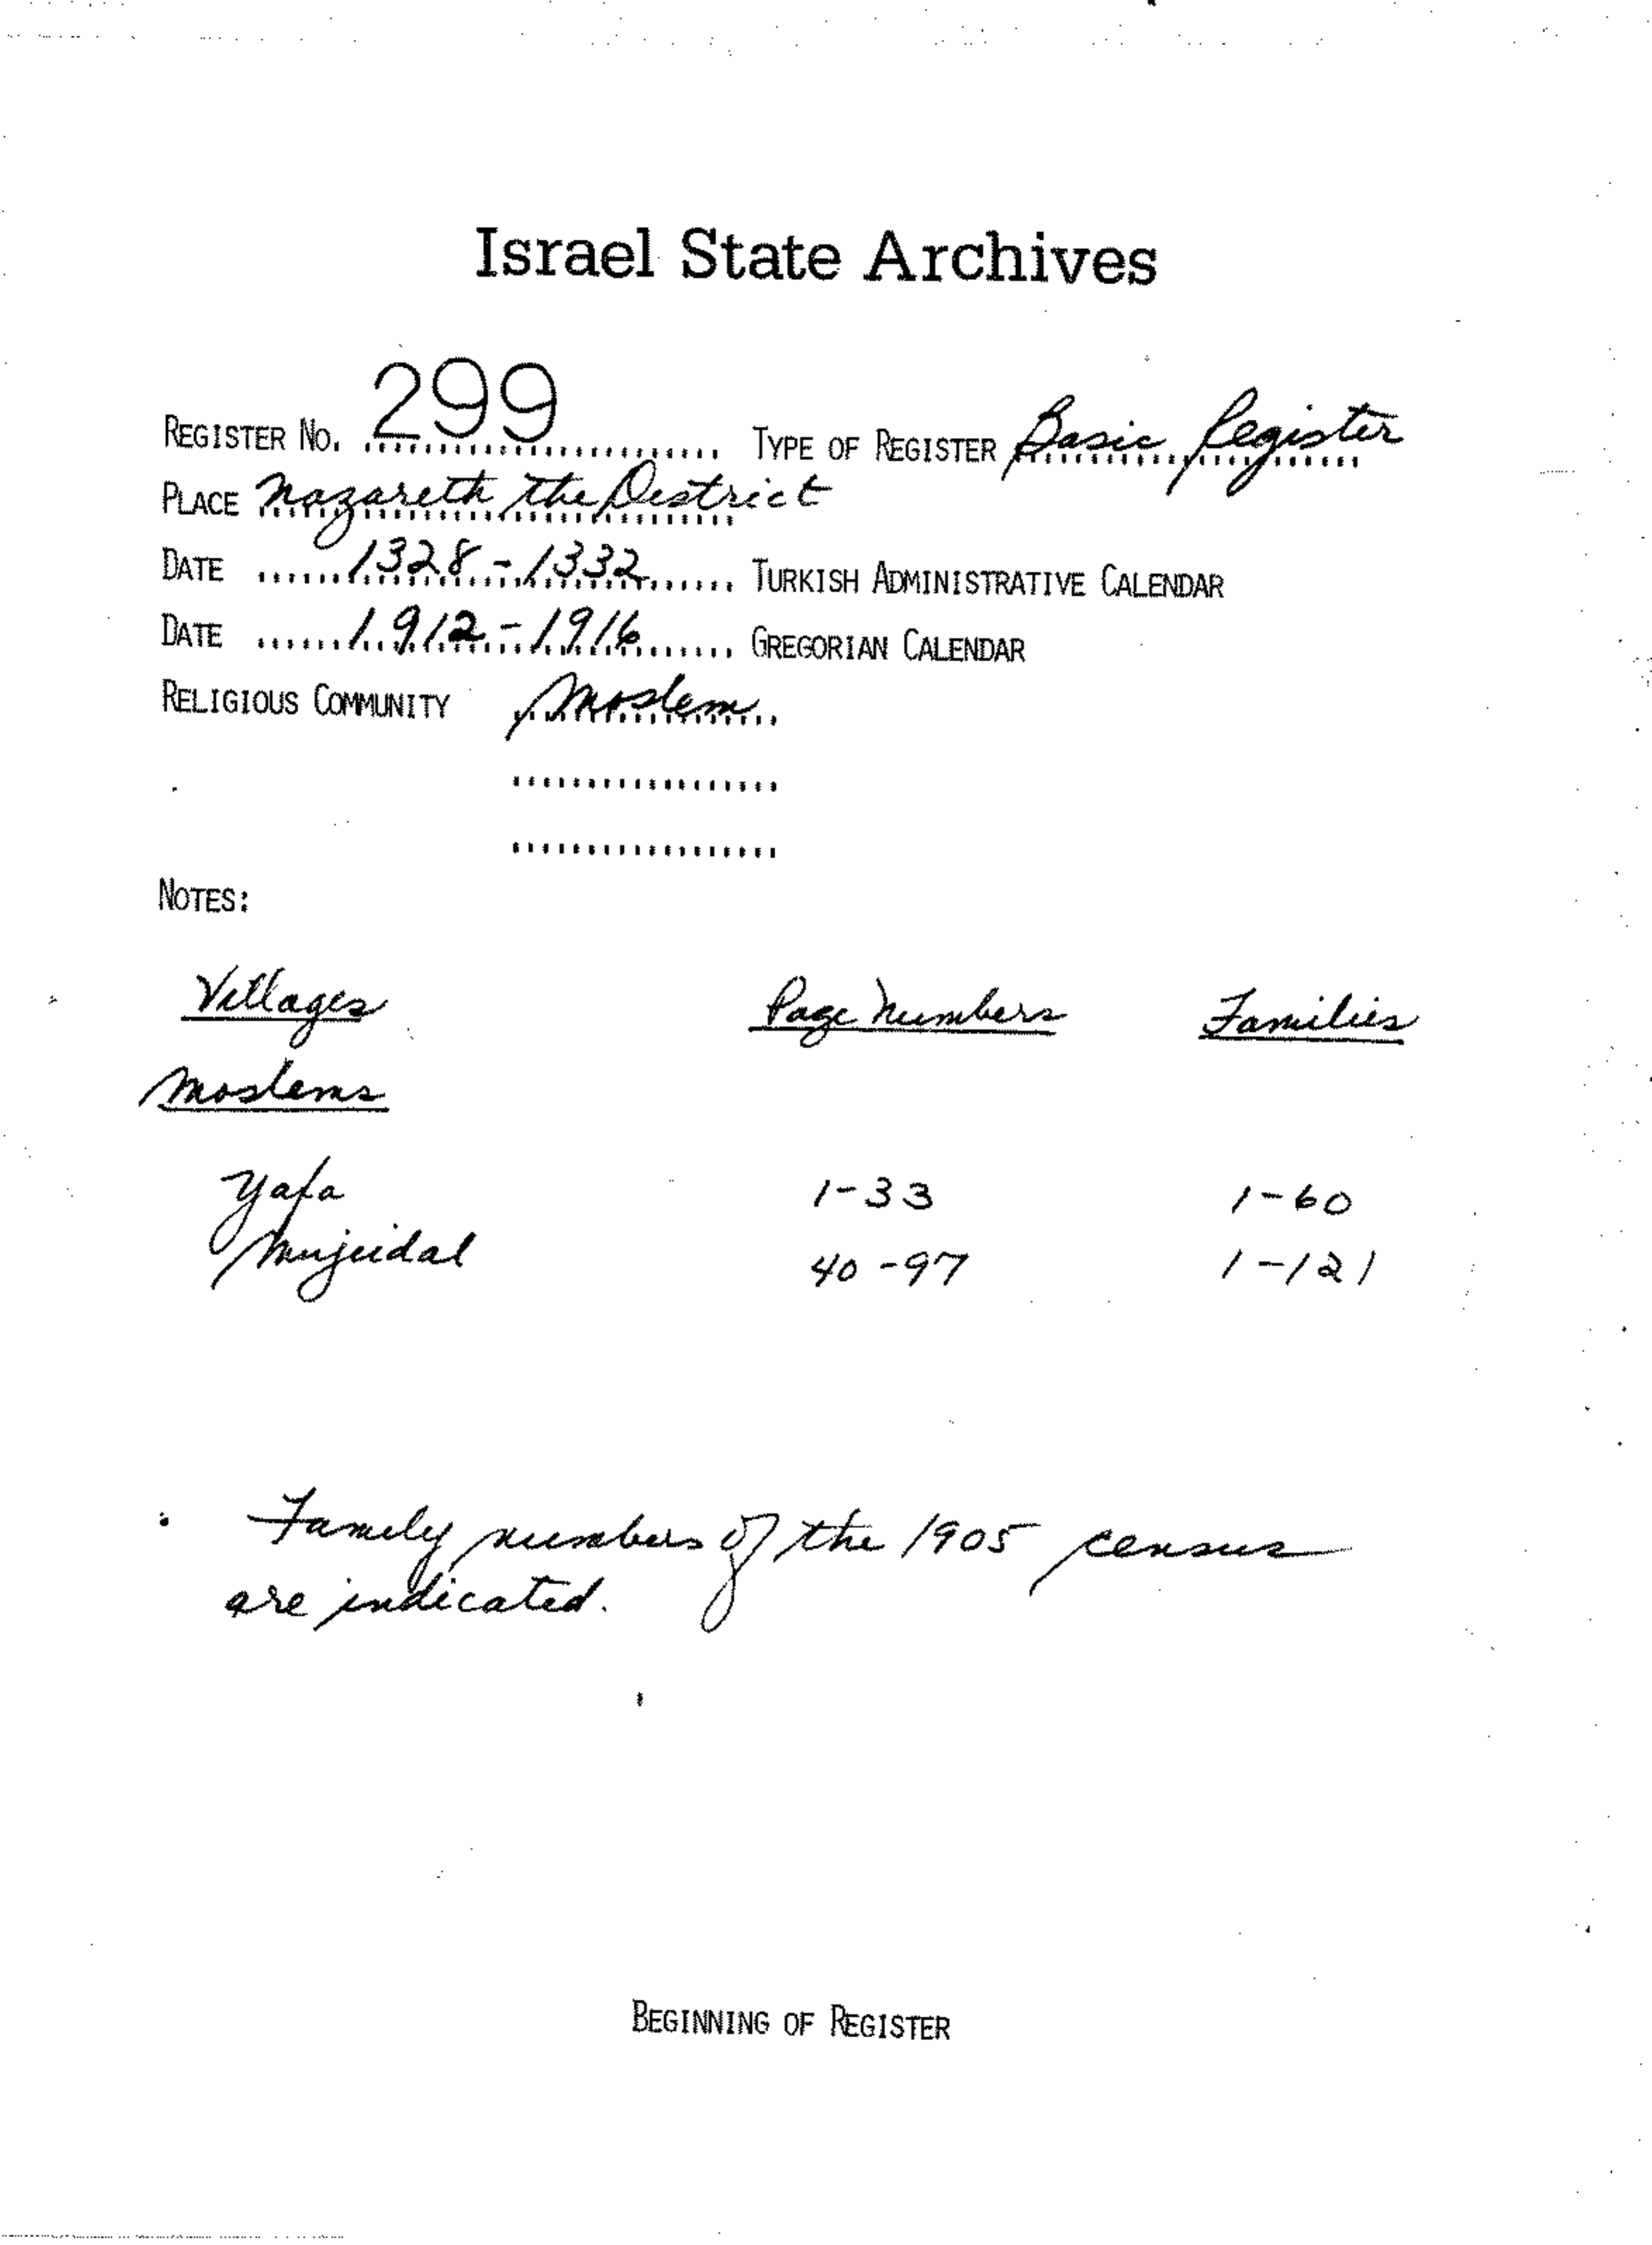 Israel State Archives
REGISTER No. 299 TYPE OF REGISTER Basic Register
PLACE Nazareth the District
DATE 1328-1332 TURKISH ADMINISTRATIVE CALENDAR
DATE 1912-1916 GREGORIAN CALENDAR
RELIGIOUS COMMUNITY Moslem
NOTES:
Villages Page Numbers Families
Moslems
Yafa 1-33 1-60
Mujeidal 40-97 1-121
Family numbers of the 1905 census
are indicated.
BEGINNING OF REGISTER